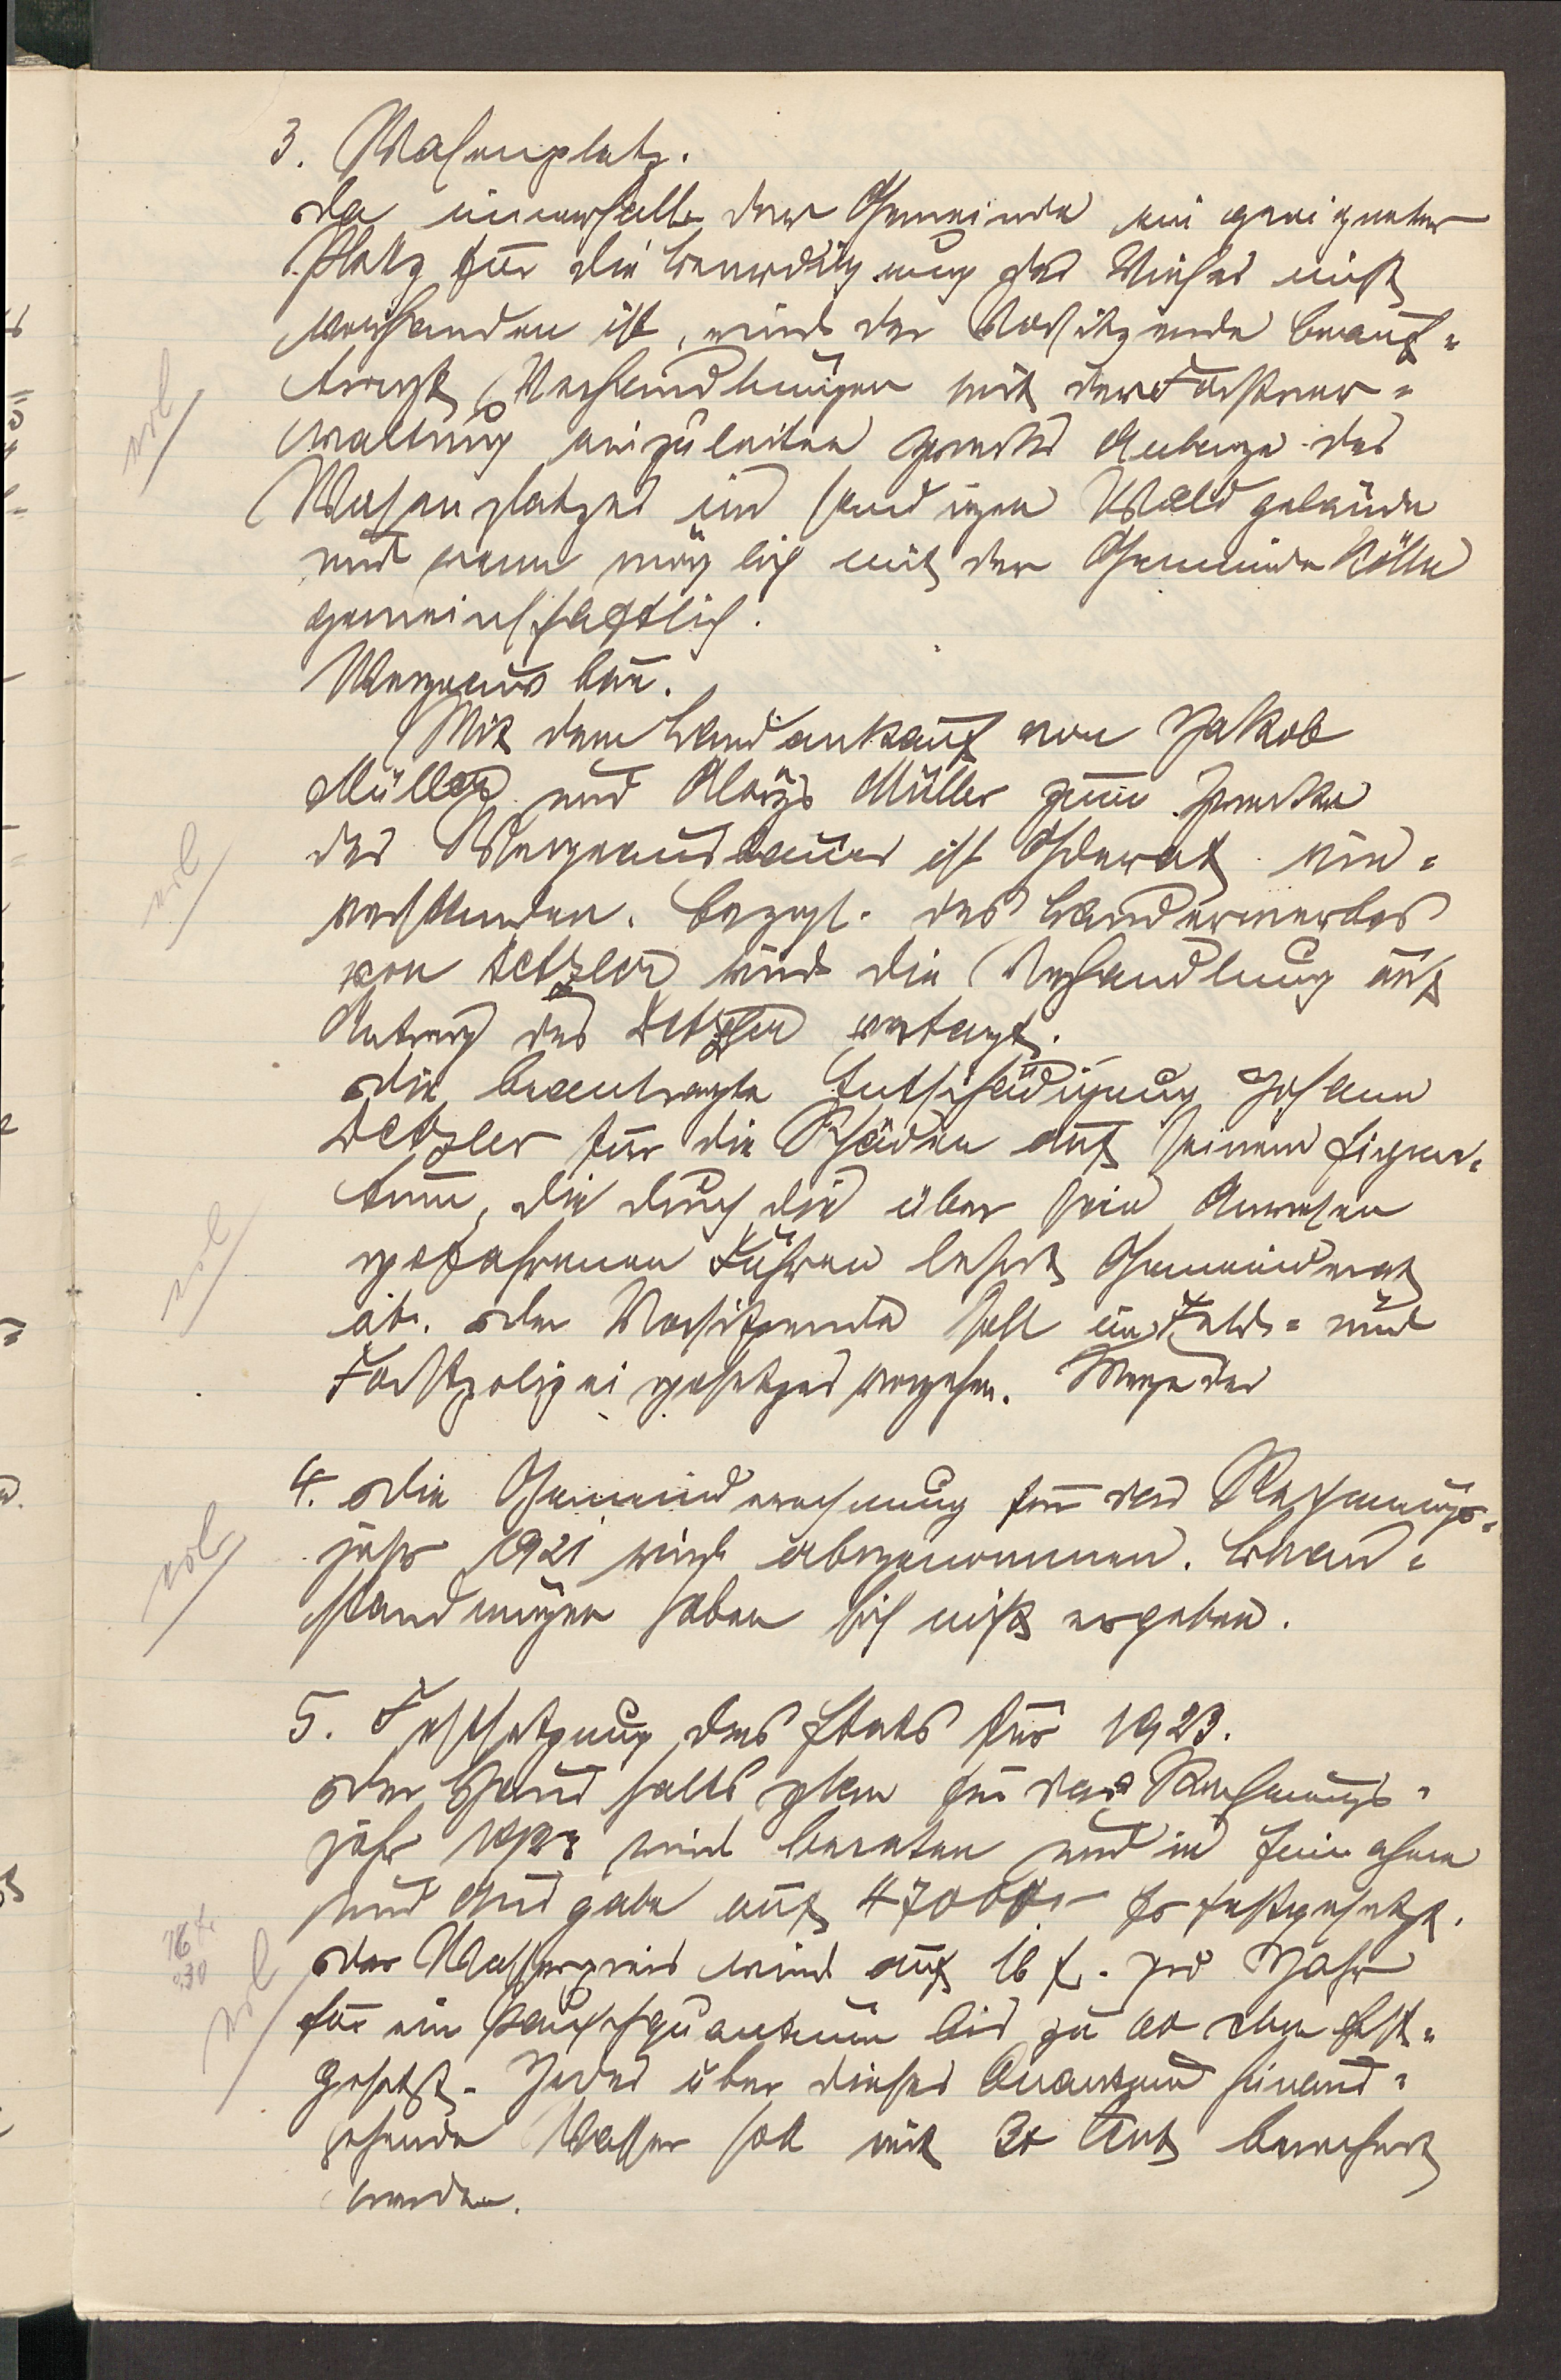 3. Wasenplatz.
Da innerhalb der Gemeinde ein geeigneter
Platz für die Beerdigung des Viehes nicht
vorhanden ist, wird der Vorsitzende beauf=
tragt Verhandlungen mit der Forstver=
waltung einzuleiten zwecks Anlage des
Wasenplatzes im sandigen Waldgelände
und wenn möglich mit der Gemeinde Kölln
gemeinschaftlich.
Wegeausbau.
Mit dem Landankauf von Jakob
Müller und Aloys Müller zum Zwecke
des Wegeausbaues ist Gderat ein=
verstanden. Bezügl. des Landerwerbes
von Detzler wird die Verhandlung auf
Antrag des Detzler vertagt.
Die beantragte Entschädigung Johann
Detzler für die Schäden auf seinem Eigen=
tum, die durch die über sein Anwesen
gefahrenen Fuhren lehnt Gemeinderat
ab. Der Vorsitzende soll im Feld= und
Forstpolizeigesetzes vorgehen. Wege des
4. Die Gemeinderechnung für das Rechnungs=
jahr 1921 wird abgenommen. Bean=
standungen haben sich nicht ergeben.
5. Festsetzung des Etats für 1923.
Der Haushaltsplan für das Rechnungs=
jahr 1923 wird beraten und in Einnahme
und Ausgabe auf 47000 fr festgesetzt.
Der Wasserpreis wird auf 16 f. pro Jahr
für ein Pauschquantum bis zu 60 cbm fest=
gesetzt. Jedes über dieses Quantum hinaus=
gehende Wasser soll mit 30 Cent berechnet
werden.